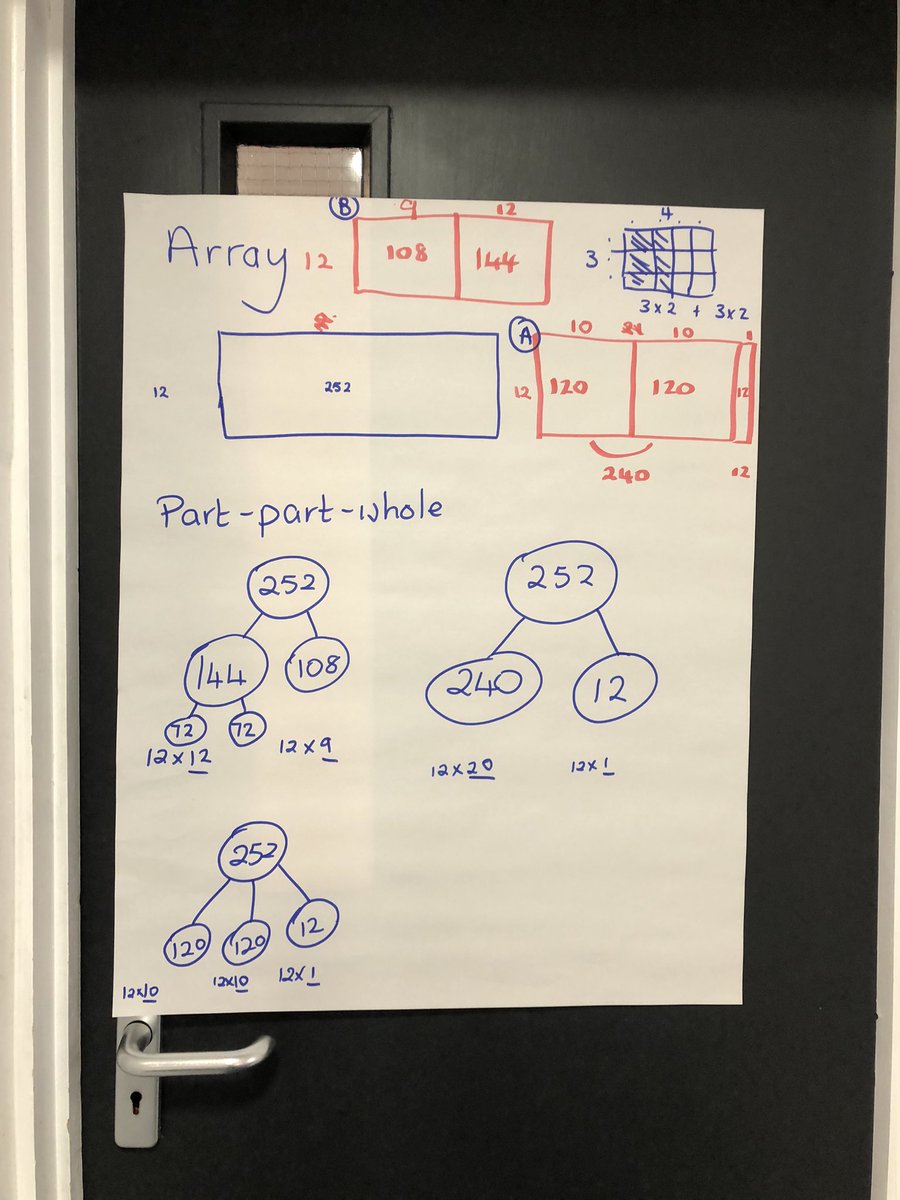 B 9 12
Array 12 108 144
4
3
3x2 + 3x2
12 252
A 10 21 10 1
12 120 120 12
240 12
Part-part-whole
252
144 108
72 72
12 x 12 12 x 9
252
240 12
12 x 20 12 x 1
252
120 120 12
12x10 12x10 12x1